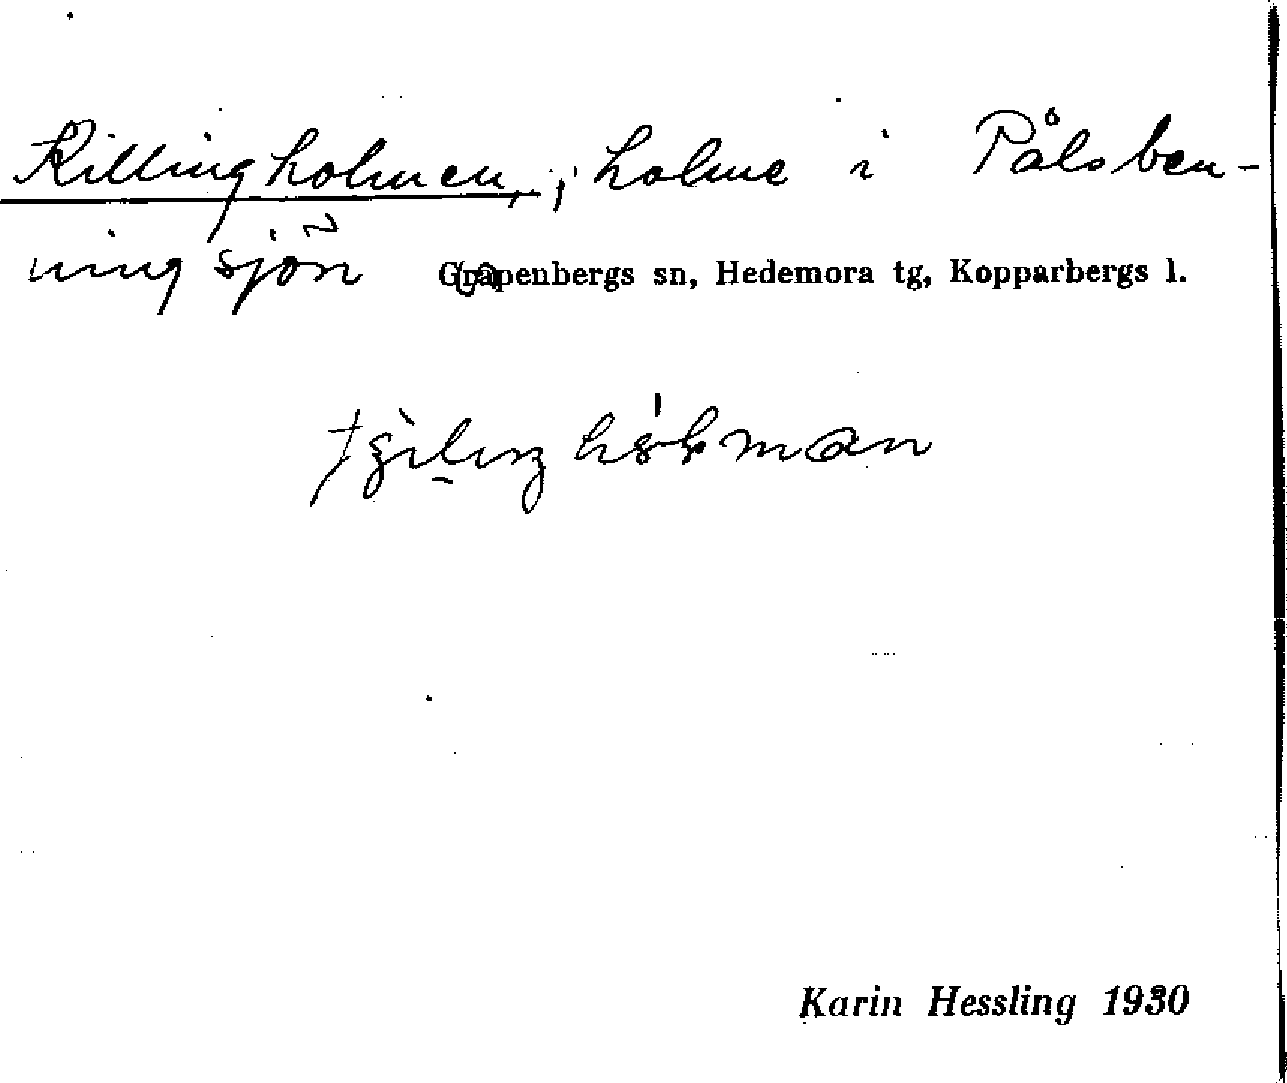 Killingholmen, holme i Pålsben-
ningsjön Garpenbergs sn, Hedemora tg, Kopparbergs l.
Karin Hessling 1930